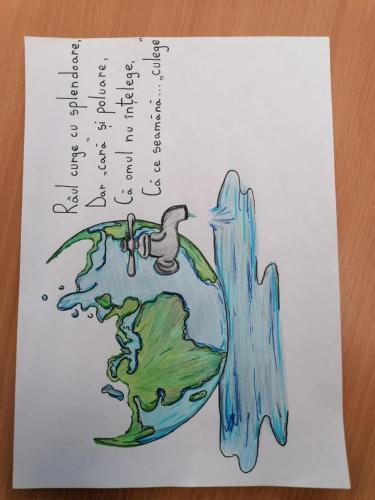 Râul curge cu splendoare,
Dar „cară” și poluare,
Că omul nu înțelege,
Că ce seamănă... „culege”